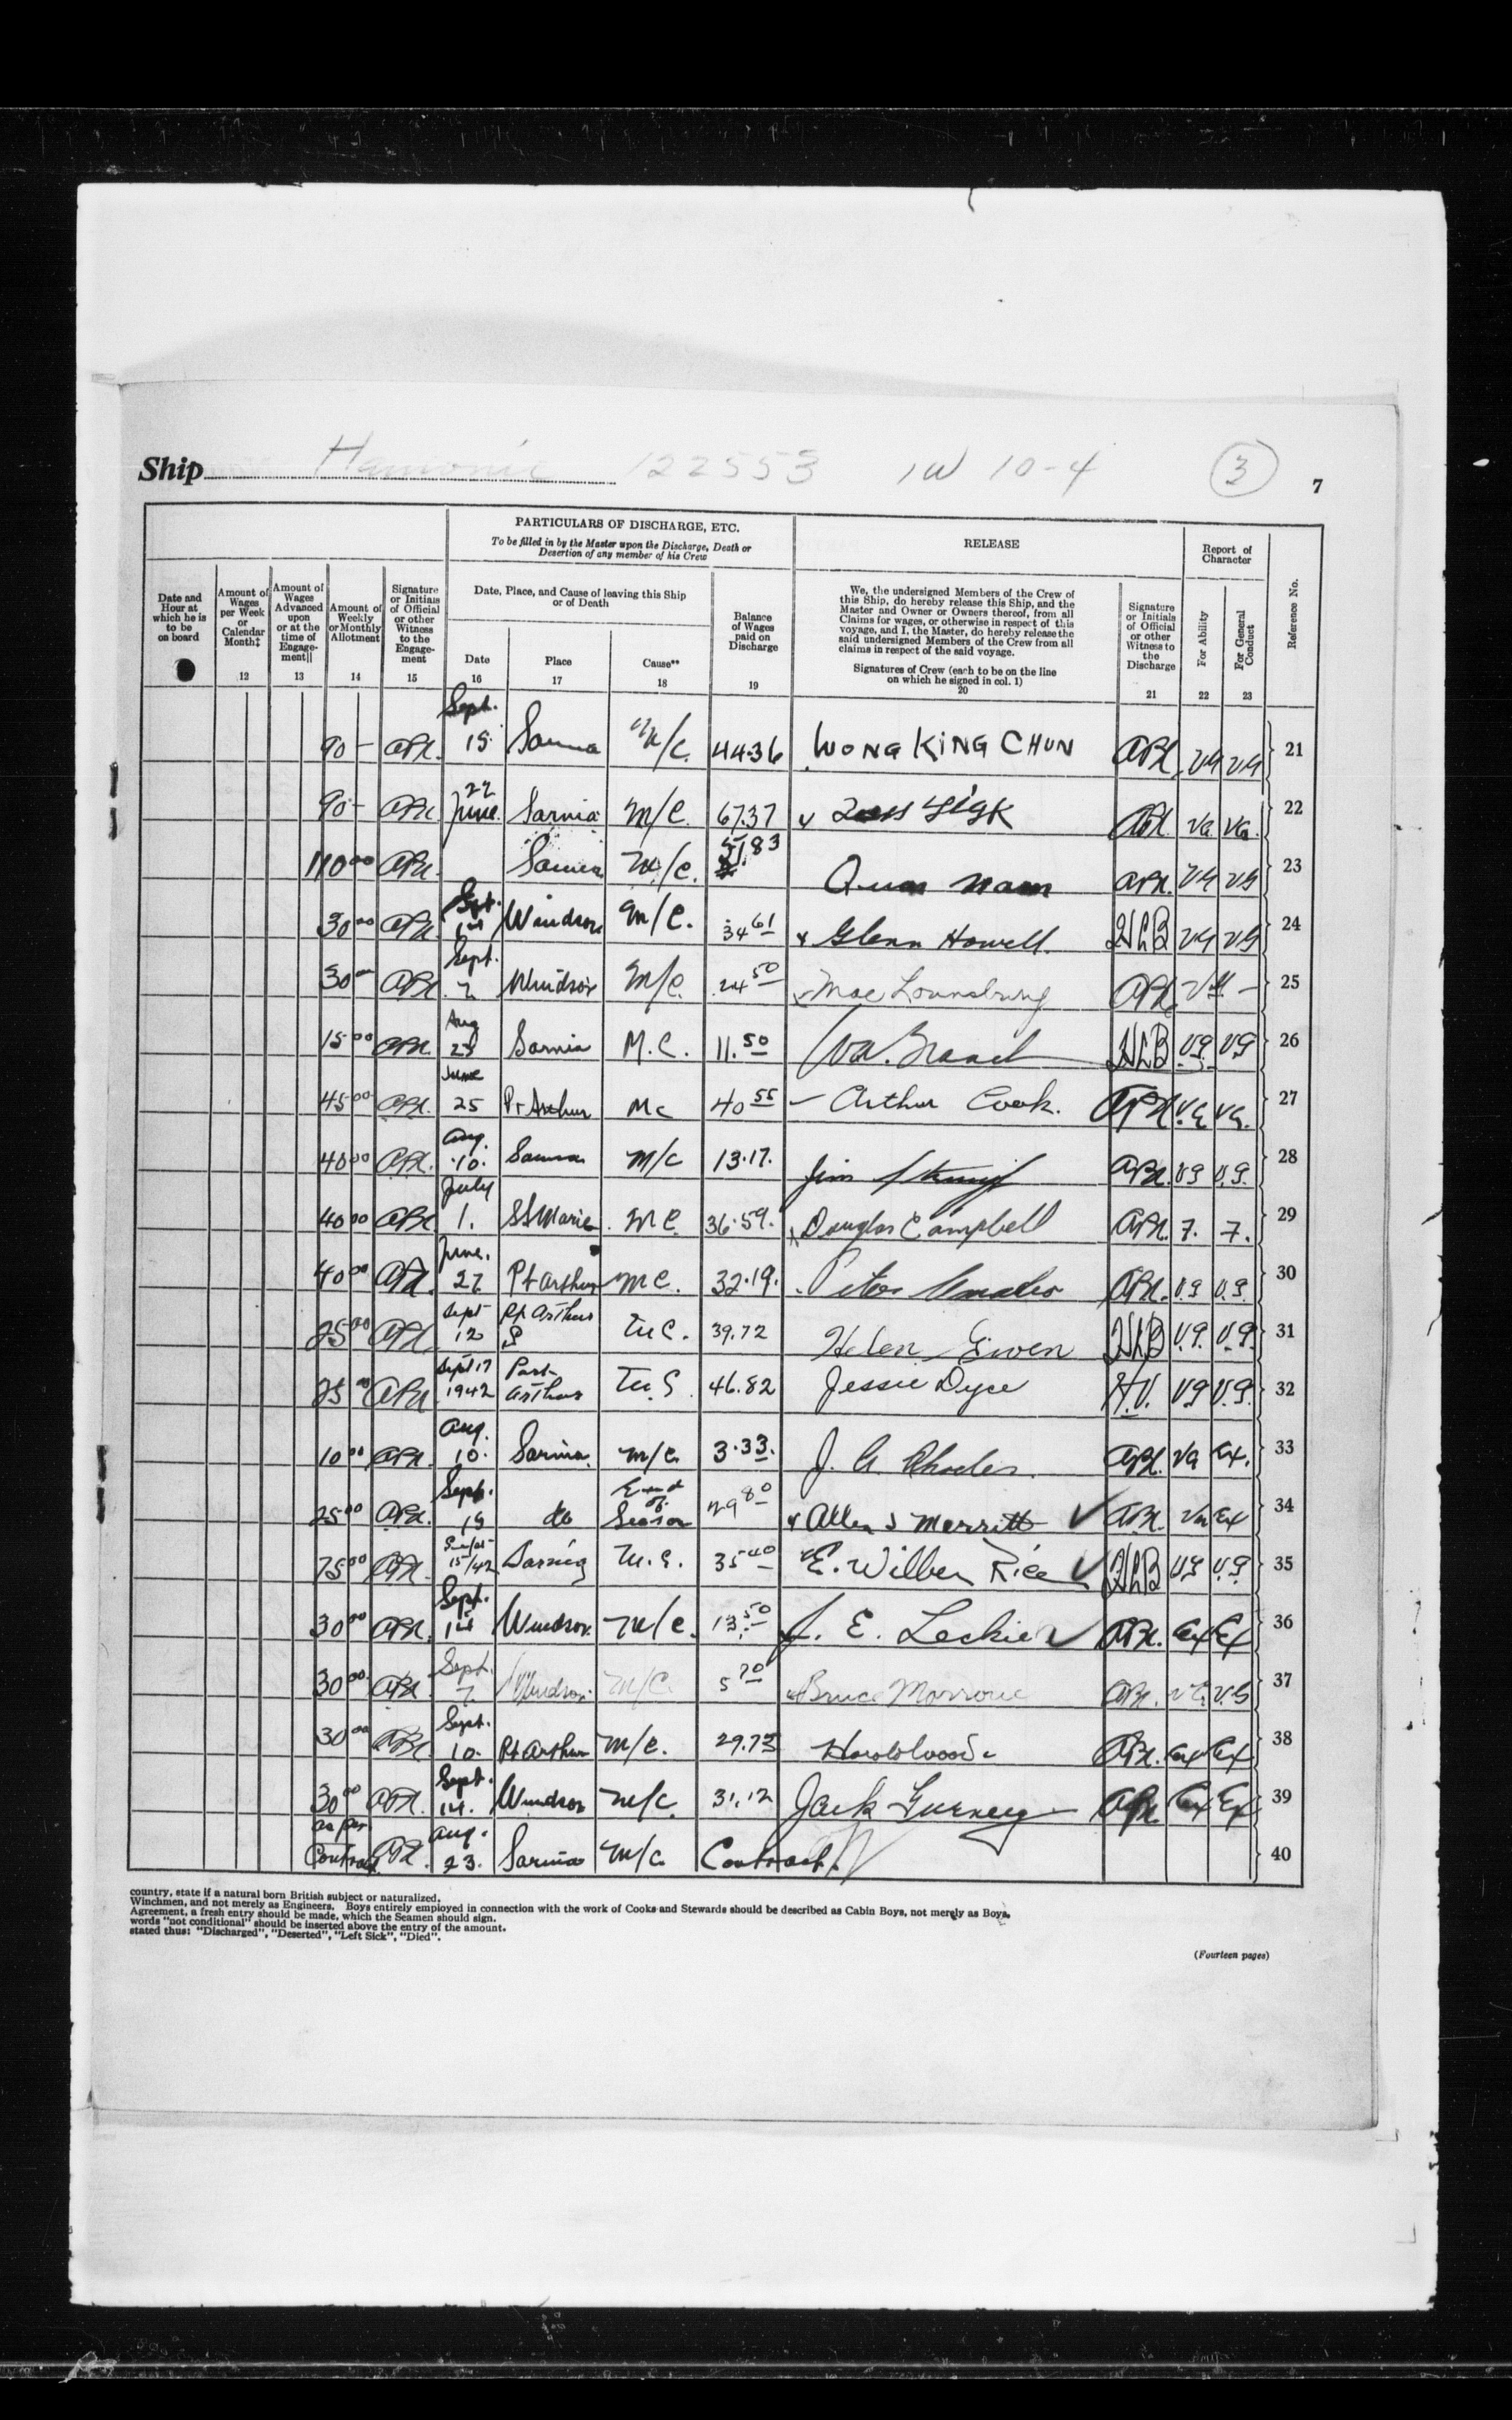 Ship Hamonic 122553 1W 10-4 3
7
PARTICULARS OF DISCHARGE, ETC.
To be filled in by the Master upon the Discharge, Death or
Desertion of any member of his Crew
RELEASE
Report of
Character
Reference No.
Date and
Hour at
which he is
to be
on board
Amount of
Wages
per Week
or
Calendar
Month‡
12
Amount of
Wages
Advanced
upon
or at the
time of
Engage-
ment||
13
Amount of
Weekly
or Monthly
Allotment
14
Signature
or Initials
of Official
or other
Witness
to the
Engage-
ment
15
Date, Place, and Cause of leaving this Ship
or of Death
Date
16
Place
17
Cause**
18
Balance
of Wages
paid on
Discharge
19
We, the undersigned Members of the Crew of
this Ship, do hereby release this Ship, and the
Master and Owner or Owners thereof, from all
Claims for wages, or otherwise in respect of this
voyage, and I, the Master, do hereby release the
said undersigned Members of the Crew from all
claims in respect of the said voyage.
Signatures of Crew (each to be on the line
on which he signed in col. 1)
20
Signature
or Initials
of Official
or other
Witness to
the
Discharge
21
For Ability
22
For General
Conduct
23
90 - Sept. 15 Sarnia M/C. 44.36 WONG KING CHUN VG VG 21
90 - 27 June Sarnia M/C. 67.37 VG VG. 22
110 00 Sarnia M/C. 51.83 VG VG 23
30 00 Sept. 14 Windsor M/C. 34 61 Glenn Howell. HLB VG VG 24
30 Sept. 7 Windsor M/C. 24 50 Mae Lounsbury 25
15 00 Aug 23 Sarnia M.C. 11.50 HLB V.G. VG 26
45 00 June 25 Pt Arthur MC 40 55 Arthur Cook. V.G VG. 27
40 00 Aug. 10. Sarnia M/C 13.17. Jim VG V.G. 28
40 00 July 1. SSMarie MC 36.59. Douglas Campbell 7. 7. 29
40 00 June. 27 Pt Arthur MC. 32.19. Peter V.G V.G. 30
25 00 Sept 12 Pt Arthur MC. 39.72 Helen Ewen HLB V.G. V.G. 31
25 00 Sept 17 1942 Port Arthur 46.82 Jessie Dyce H.V. VG V.G. 32
10 00 Aug. 10. Sarnia. M/C. 3.33. J. G. Rhodes. VG Ex. 33
25 00 Sept. 15 do End of Season 29 80 Allen S Merritt VG Ex 34
75 00 Sept 15/42 Sarnia 35 40 E. Wilber Rice HLB VG V.G. 35
30 00 Sept. 14 Windsor. M/C. 13.50 J. E. Leckie Ex Ex 36
30 00 Sept. 7 Windsor M/C. 5 70 Bruce Morrow V.G 37
30 00 Sept. 10. Pt Arthur M/C. 29.73 Ex Ex 38
30 00 Sept. 14. Windsor M/C. 31.12 Jack Gurney Ex Ex 39
as per Contract Aug. 23. Sarnia M/C Contract. 40
country, state if a natural born British subject or naturalized.
Winchmen, and not merely as Engineers. Boys entirely employed in connection with the work of Cooks and Stewards should be described as Cabin Boys, not merely as Boys.
Agreement, a fresh entry should be made, which the Seamen should sign.
words "not conditional" should be inserted above the entry of the amount.
stated thus: "Discharged", "Deserted", "Left Sick", "Died".
(Fourteen pages)